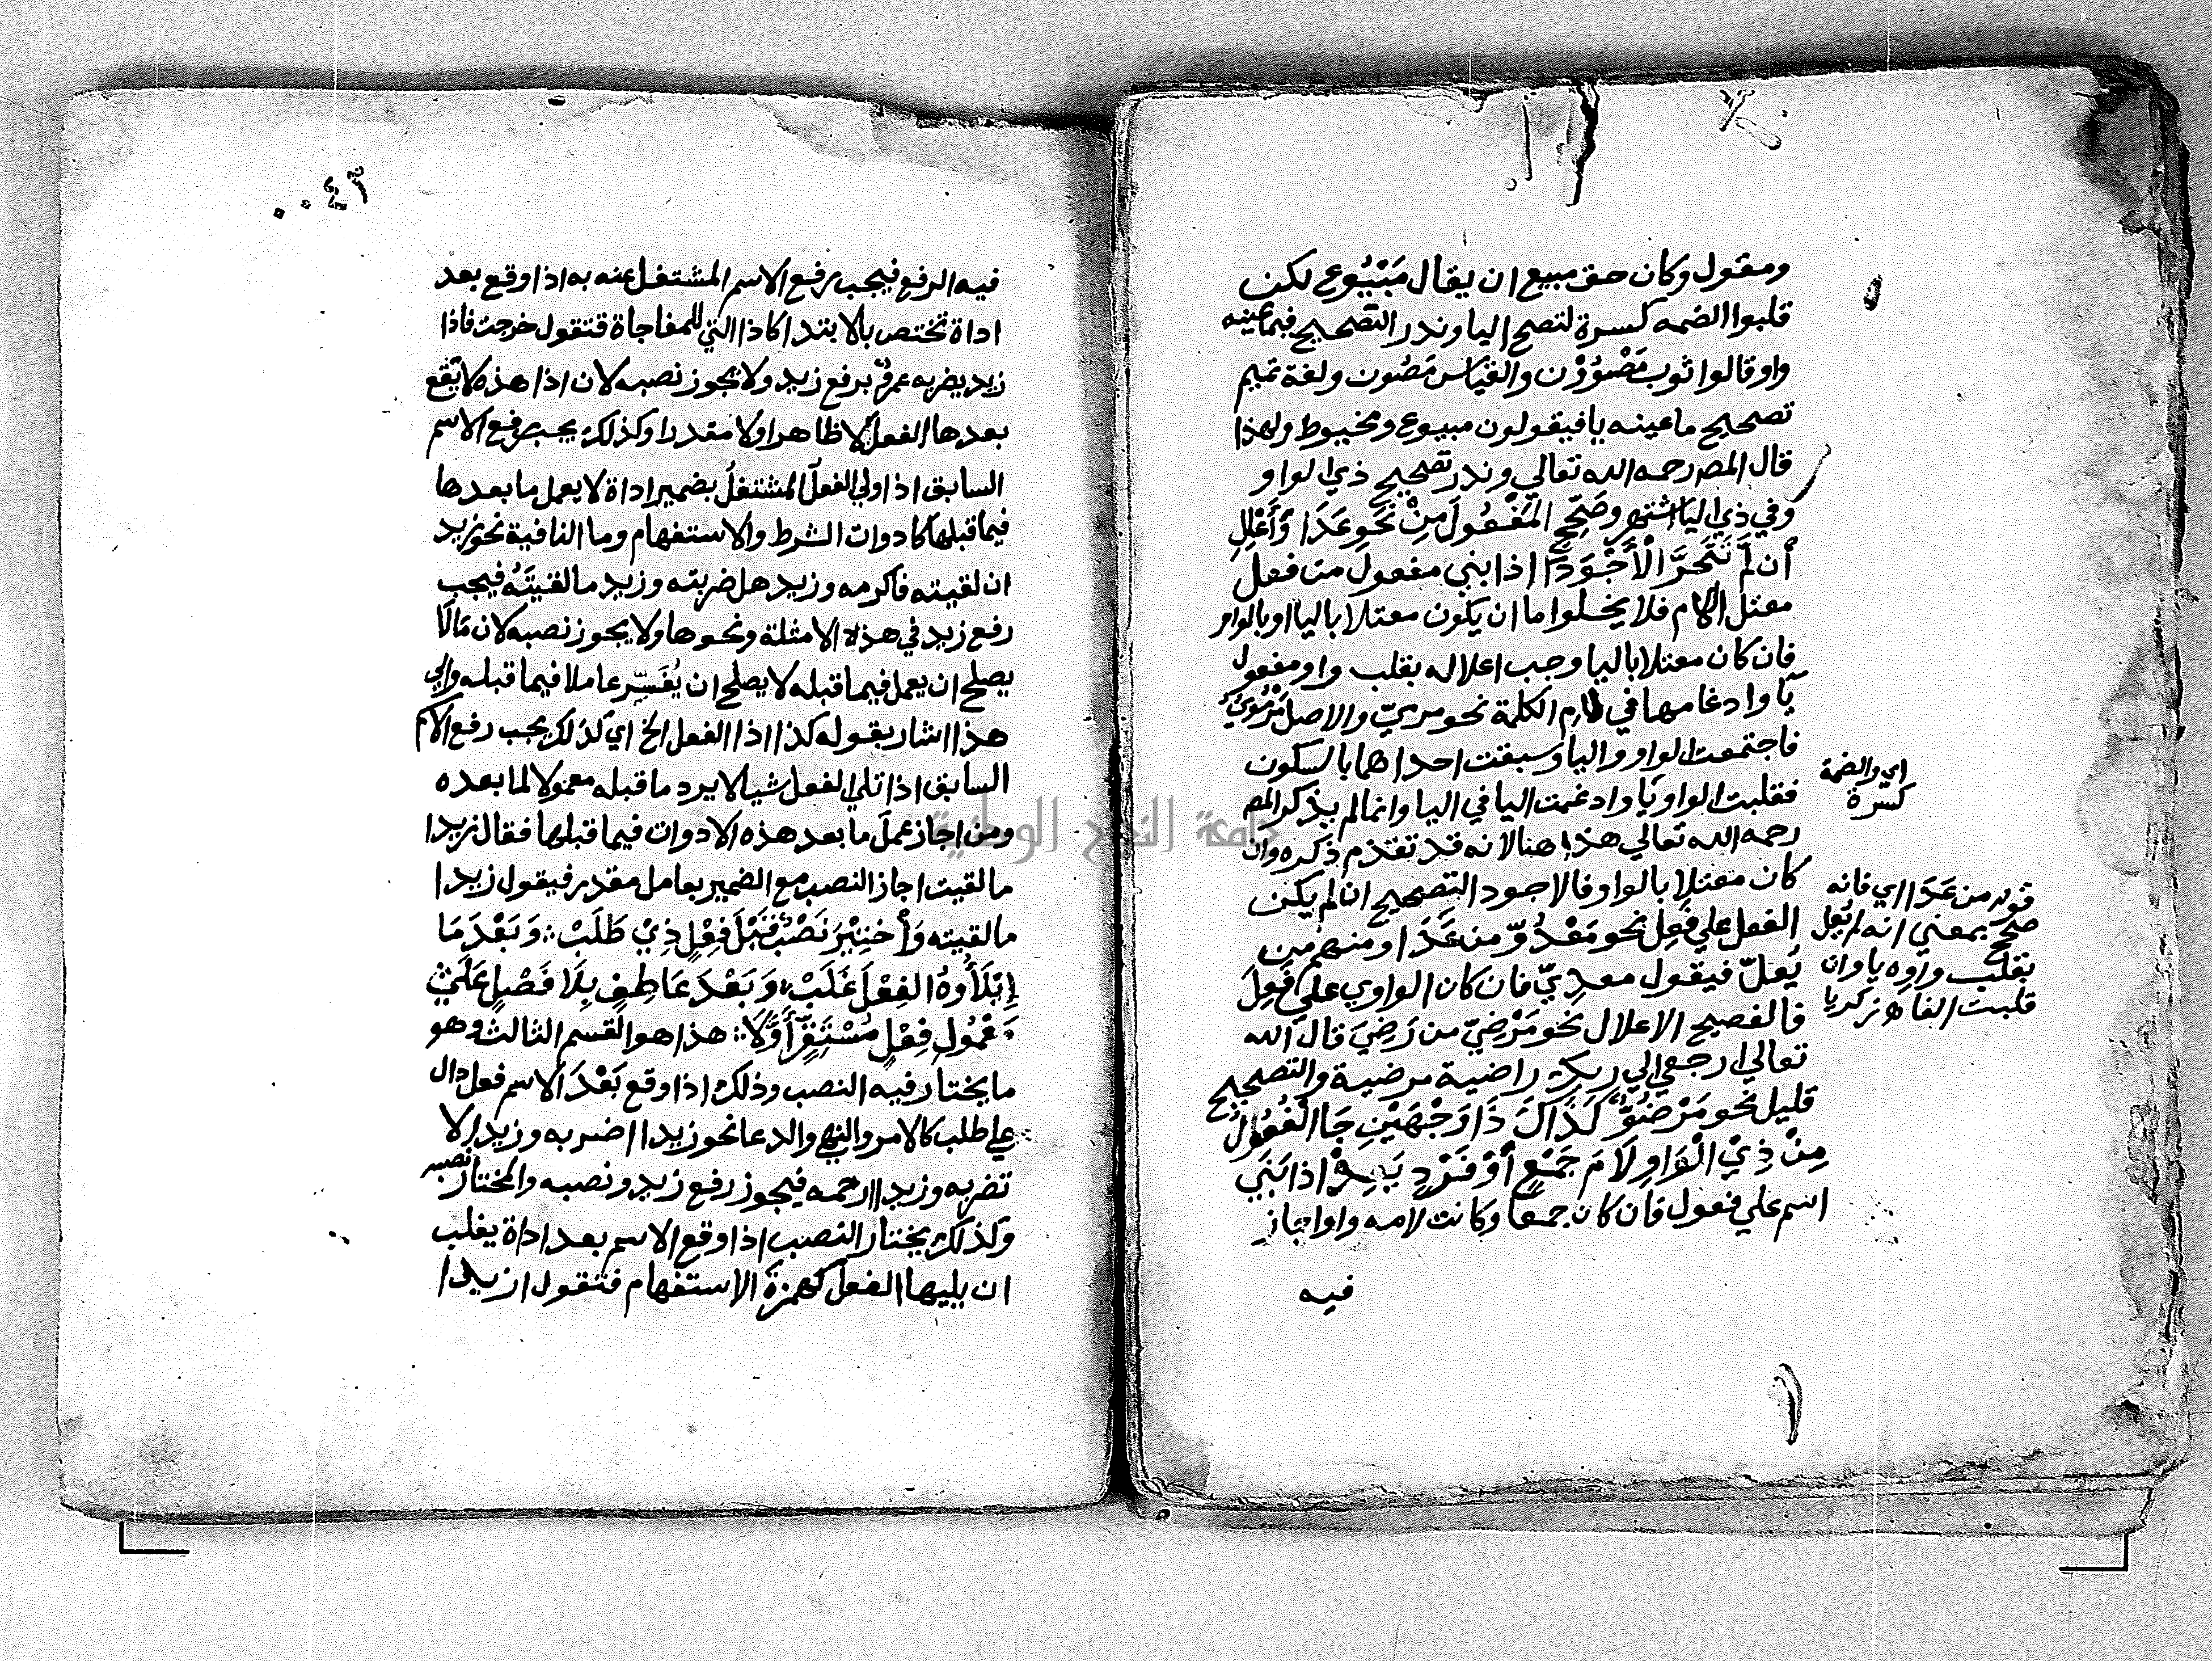 ومقول وكان حق مبيع ان يقال مَبْيُوع لكن
قلبوا الضمه كسرة لتصح اليا وندر التصحيح فيما عينه
واو قالوا ثوب مَصْوُوْن والقياس مَصُون ولغة تميم
تصحيح ما عينه يا فيقولون مبيوع ومخيوط ولهذا
قال المصر رحمه الله تعالي وندر تصحيح ذي الواو
وفي ذي اليا اشتهر وصَحِّحِ المَفْعُولَ مِنْ نَحوِ عَدَا وَأَعْلِلِ
أن لَمْ تَتَحرَّ الْأَجْوَدَا اذا بني مفعول من فعل
معتل اللام فلا يخلوا ما ان يكون معتلا باليا او بالواو
فان كان معتلا باليا وجب اعلاله بقلب واو مفعول
يا وادغامها في لام الكلمة نحو مرميّ والاصل مَرْمُويٌ
فاجتمعت الواو واليا وسبقت احداهما بالسكون
فقلبت الواو يا وادغمت اليا في اليا وانما لم يذكر المص
رحمه الله تعالي هذا هنا لانه قد تقدم ذكره وان
كان معتلا بالواو فالاجود التصحيح ان لم يكن
الفعل علي فَعِل نحو مَعْدُوّ من عَدَا ومنهم من
يُعلّ فيقول معديّ فان كان الواوي علي فَعِلَ
فالفصيح الاعلال نحو مَرْضِيّ من رَضِيَ قال الله
تعالي ارجعي الي ربك راضية مرضية والتصحيح
قليل نحو مَرْضُوٌّ كَذَاكَ ذَا وَجْهَيْنِ جَا الْفُعُوْلُ
مِنْ ذِيْ الْوَاوِ لَامَ جَمْعٍ أَوْ فَرْدٍ يَعِنْ اذا بَنَي
اسم علي فعول فان كان جمعا وكانت لامه واوا جاز
فيه
اي والضمة
كسرة
قوله من عَدَا اي فانه
صحح بمعني انه لم يُعل
بقلب واوه يا وان
قلبت الفا هنز كديا
٠٠٤٢
فيه الرفع فيجب رفع الاسم المشتغل عنه به اذا وقع بعد
اداة تختص بالابتدا كاذا التي للمفاجاة فتقول خرجت فاذا
زيد يضربه عمرو برفع زيد ولا يجوز نصبه لان اذا هذه لا يقع
بعدها الفعل لا ظاهرا ولا مقدرا وكذلك يجب رفع الاسم
السابق اذا ولي الفعل المشتغل بضمير اداة لا يعمل ما بعدها
فيما قبلها كادوات الشرط والاستفهام وما النافية نحو زيد
ان لقيته فاكرمه وزيد هل ضربته وزيد ما لقيتَهُ فيجب
رفع زيد في هذه الامثلة ونحوها ولا يجوز نصبه لان مَا لَا
يصلح ان يعمل فيما قبله لا يصلح ان يُفَسِّر عاملا فيما قبله والي
هذا اشار بقوله كذا اذا الفعل الخ اي كذلك يجب رفع الاسم
السابق اذا تلي الفعل شيا لا يرد ما قبله معمولا لما بعده
ومن اجاز عمل ما بعد هذه الادوات فيما قبلها فقال زيدا
ما لقيت اجاز النصب مع الضمير بعامل مقدر فيقول زيدا
ما لقيته وَأُخْتِيْرَ نَصْبٌ قَبْلَ فِعْلٍ ذِيْ طَلَبْ وَبَعْدَ مَا
إِيْلَاؤُهُ الفِعْلَ غَلَبْ وَبَعْدَ عَاطِفٍ بِلَا فَصْلٍ عَلَيْ
مَعْمُولِ فِعْلٍ مُسْتَقِرٍّ أَوَّلَا هذا هو القسم الثالث وهو
ما يختار فيه النصب وذلك اذا وقع بَعْدَ الاسم فعل دال
علي طلب كالامر والنهي والدعا نحو زيدا اضربه وزيدا لا
تضربه وزيدا ارحمه فيجوز رفع زيد ونصبه والمختار نصبه
وكذلك يختار النصب اذا وقع الاسم بعد اداة يغلب
ان يليها الفعل كهمزة الاستفهام فتقول ازيدا
جامعة النجاح الوطنية